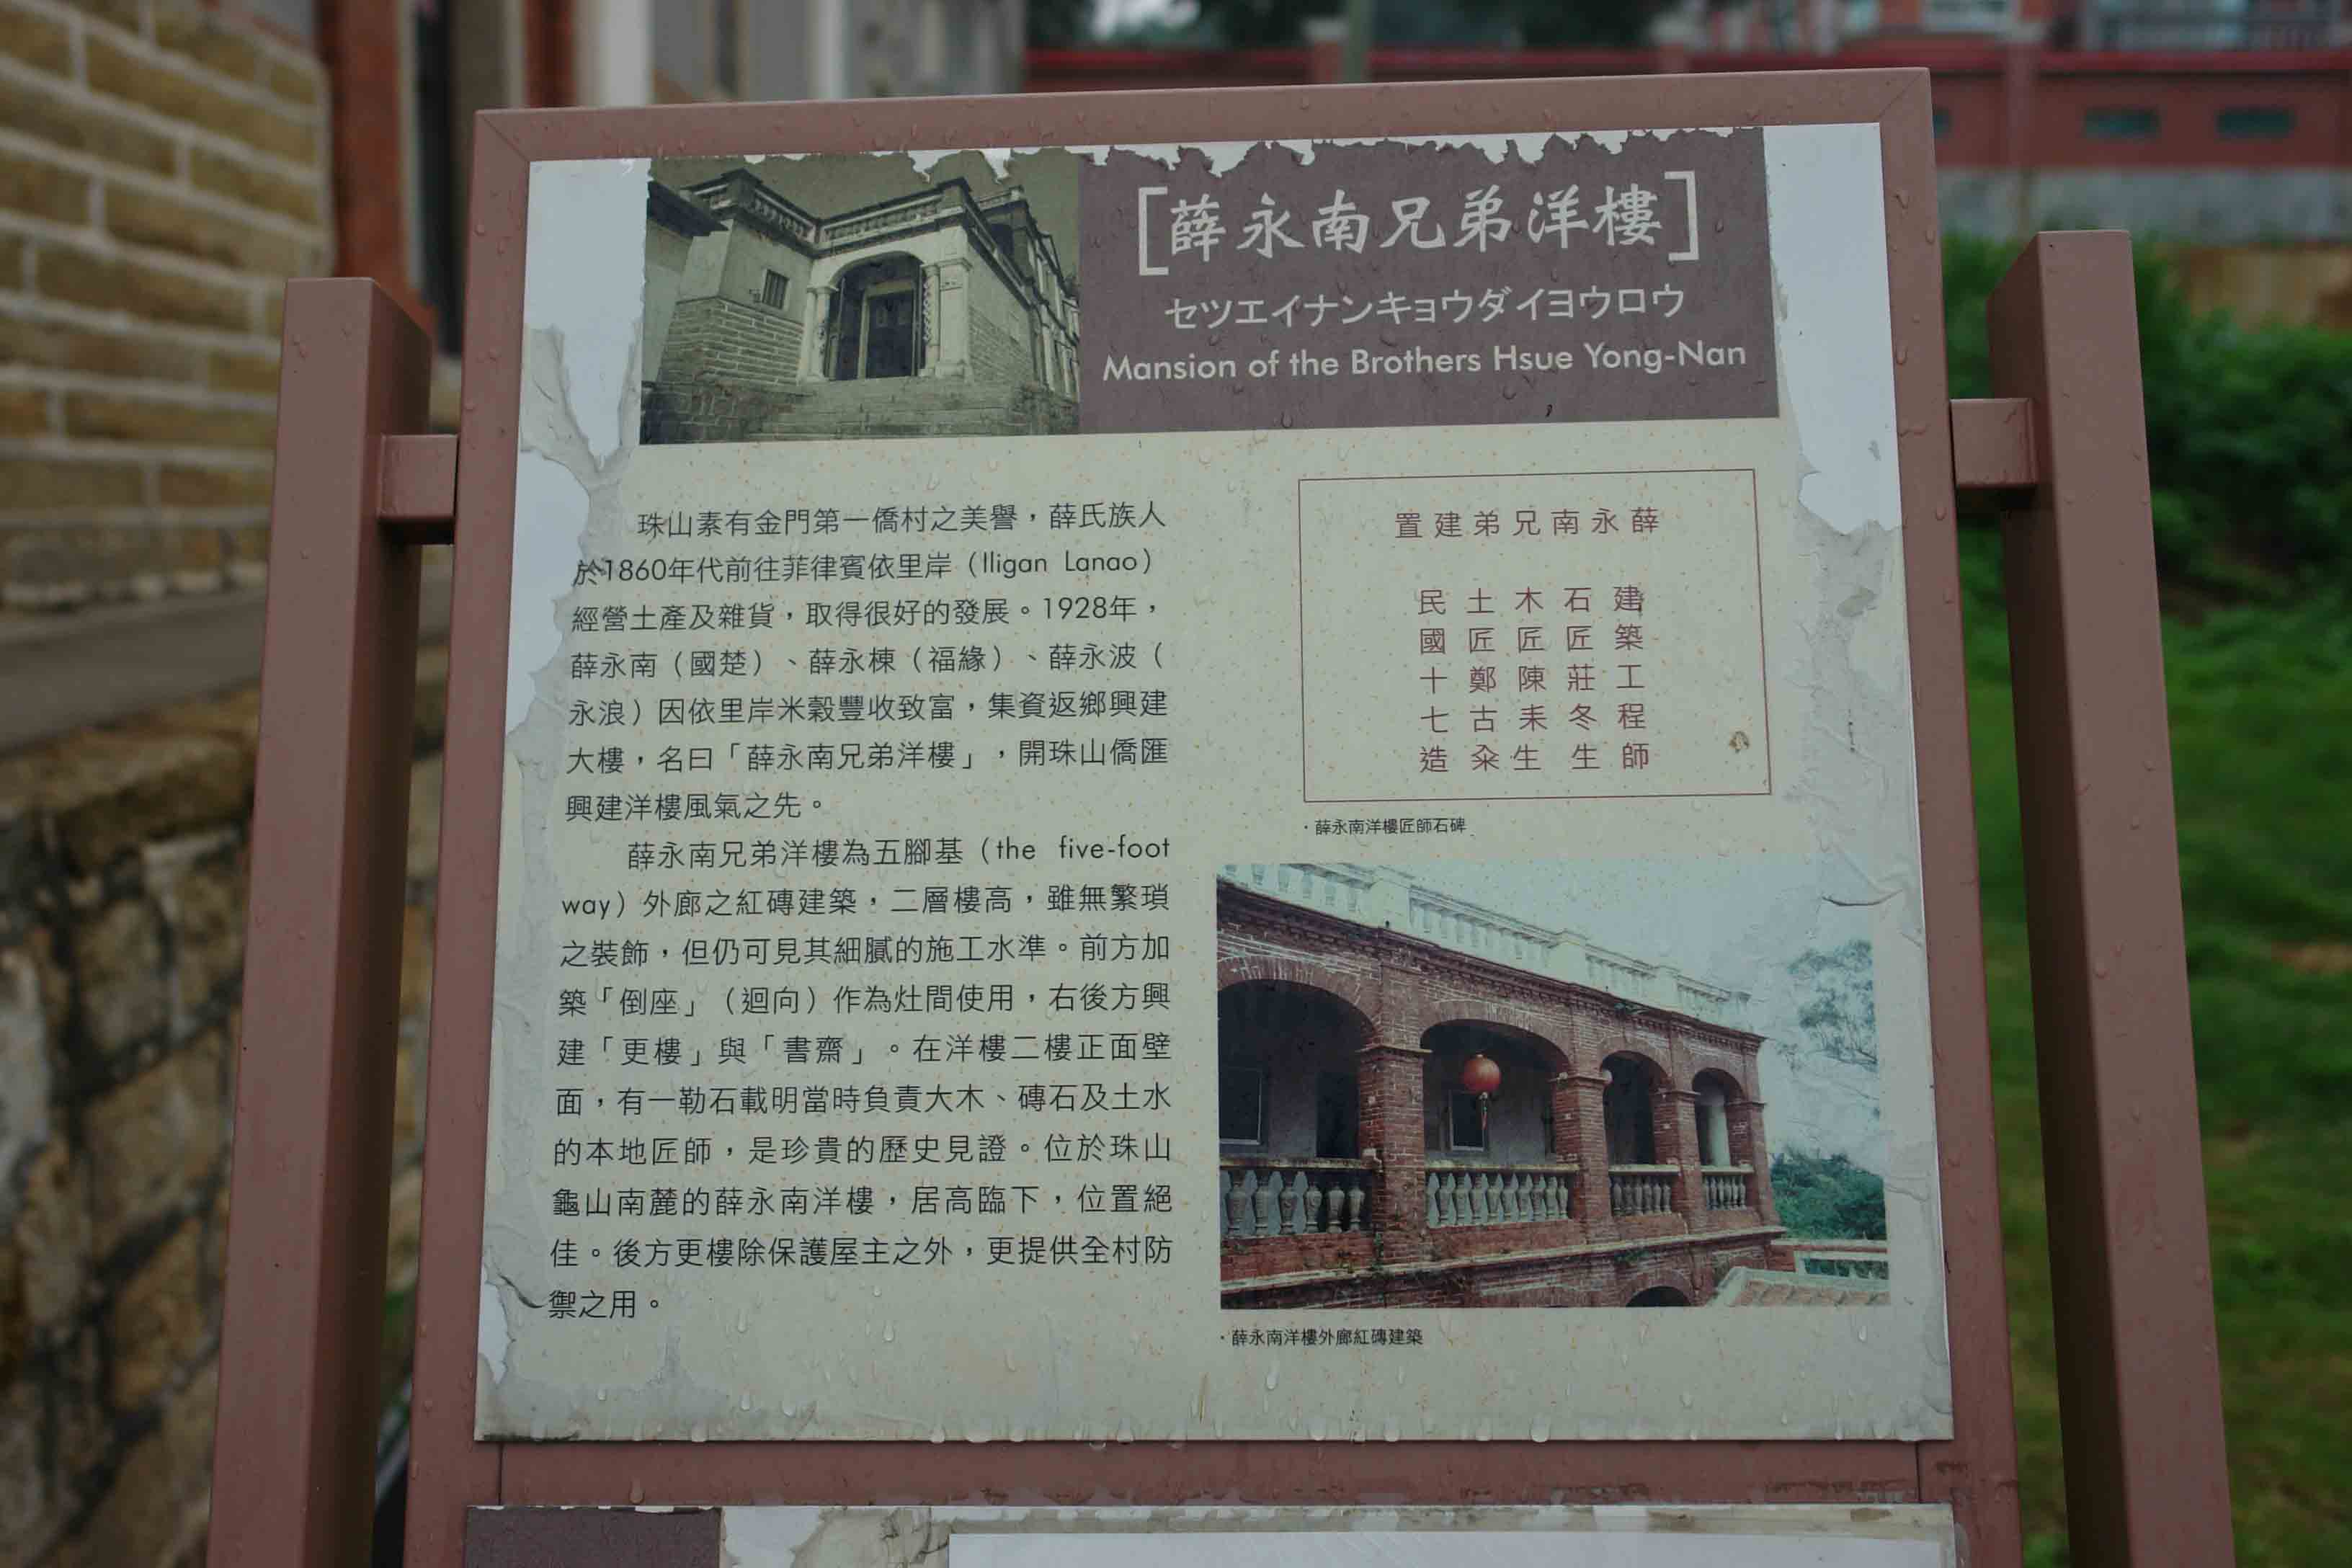 [薛永南兄弟洋樓]
セツエイナンキョウダイヨウロウ
Mansion of the Brothers Hsue Yong-Nan
珠山素有金門第一僑村之美譽，薛氏族人
於1860年代前往菲律賓依里岸（Iligan Lanao）
經營土產及雜貨，取得很好的發展。1928年，
薛永南（國楚）、薛永棟（福緣）、薛永波（
永浪）因依里岸米穀豐收致富，集資返鄉興建
大樓，名曰「薛永南兄弟洋樓」，開珠山僑匯
興建洋樓風氣之先。
薛永南兄弟洋樓為五腳基（the five-foot
way）外廊之紅磚建築，二層樓高，雖無繁瑣
之裝飾，但仍可見其細膩的施工水準。前方加
築「倒座」（迴向）作為灶間使用，右後方興
建「更樓」與「書齋」。在洋樓二樓正面壁
面，有一勒石載明當時負責大木、磚石及土水
的本地匠師，是珍貴的歷史見證。位於珠山
龜山南麓的薛永南洋樓，居高臨下，位置絕
佳。後方更樓除保護屋主之外，更提供全村防
禦之用。
置建弟兄南永薛
建築工程師
石匠莊冬生
木匠陳耒生
土匠鄭古籴
民國十七造
·薛永南洋樓匠師石碑
·薛永南洋樓外廊紅磚建築